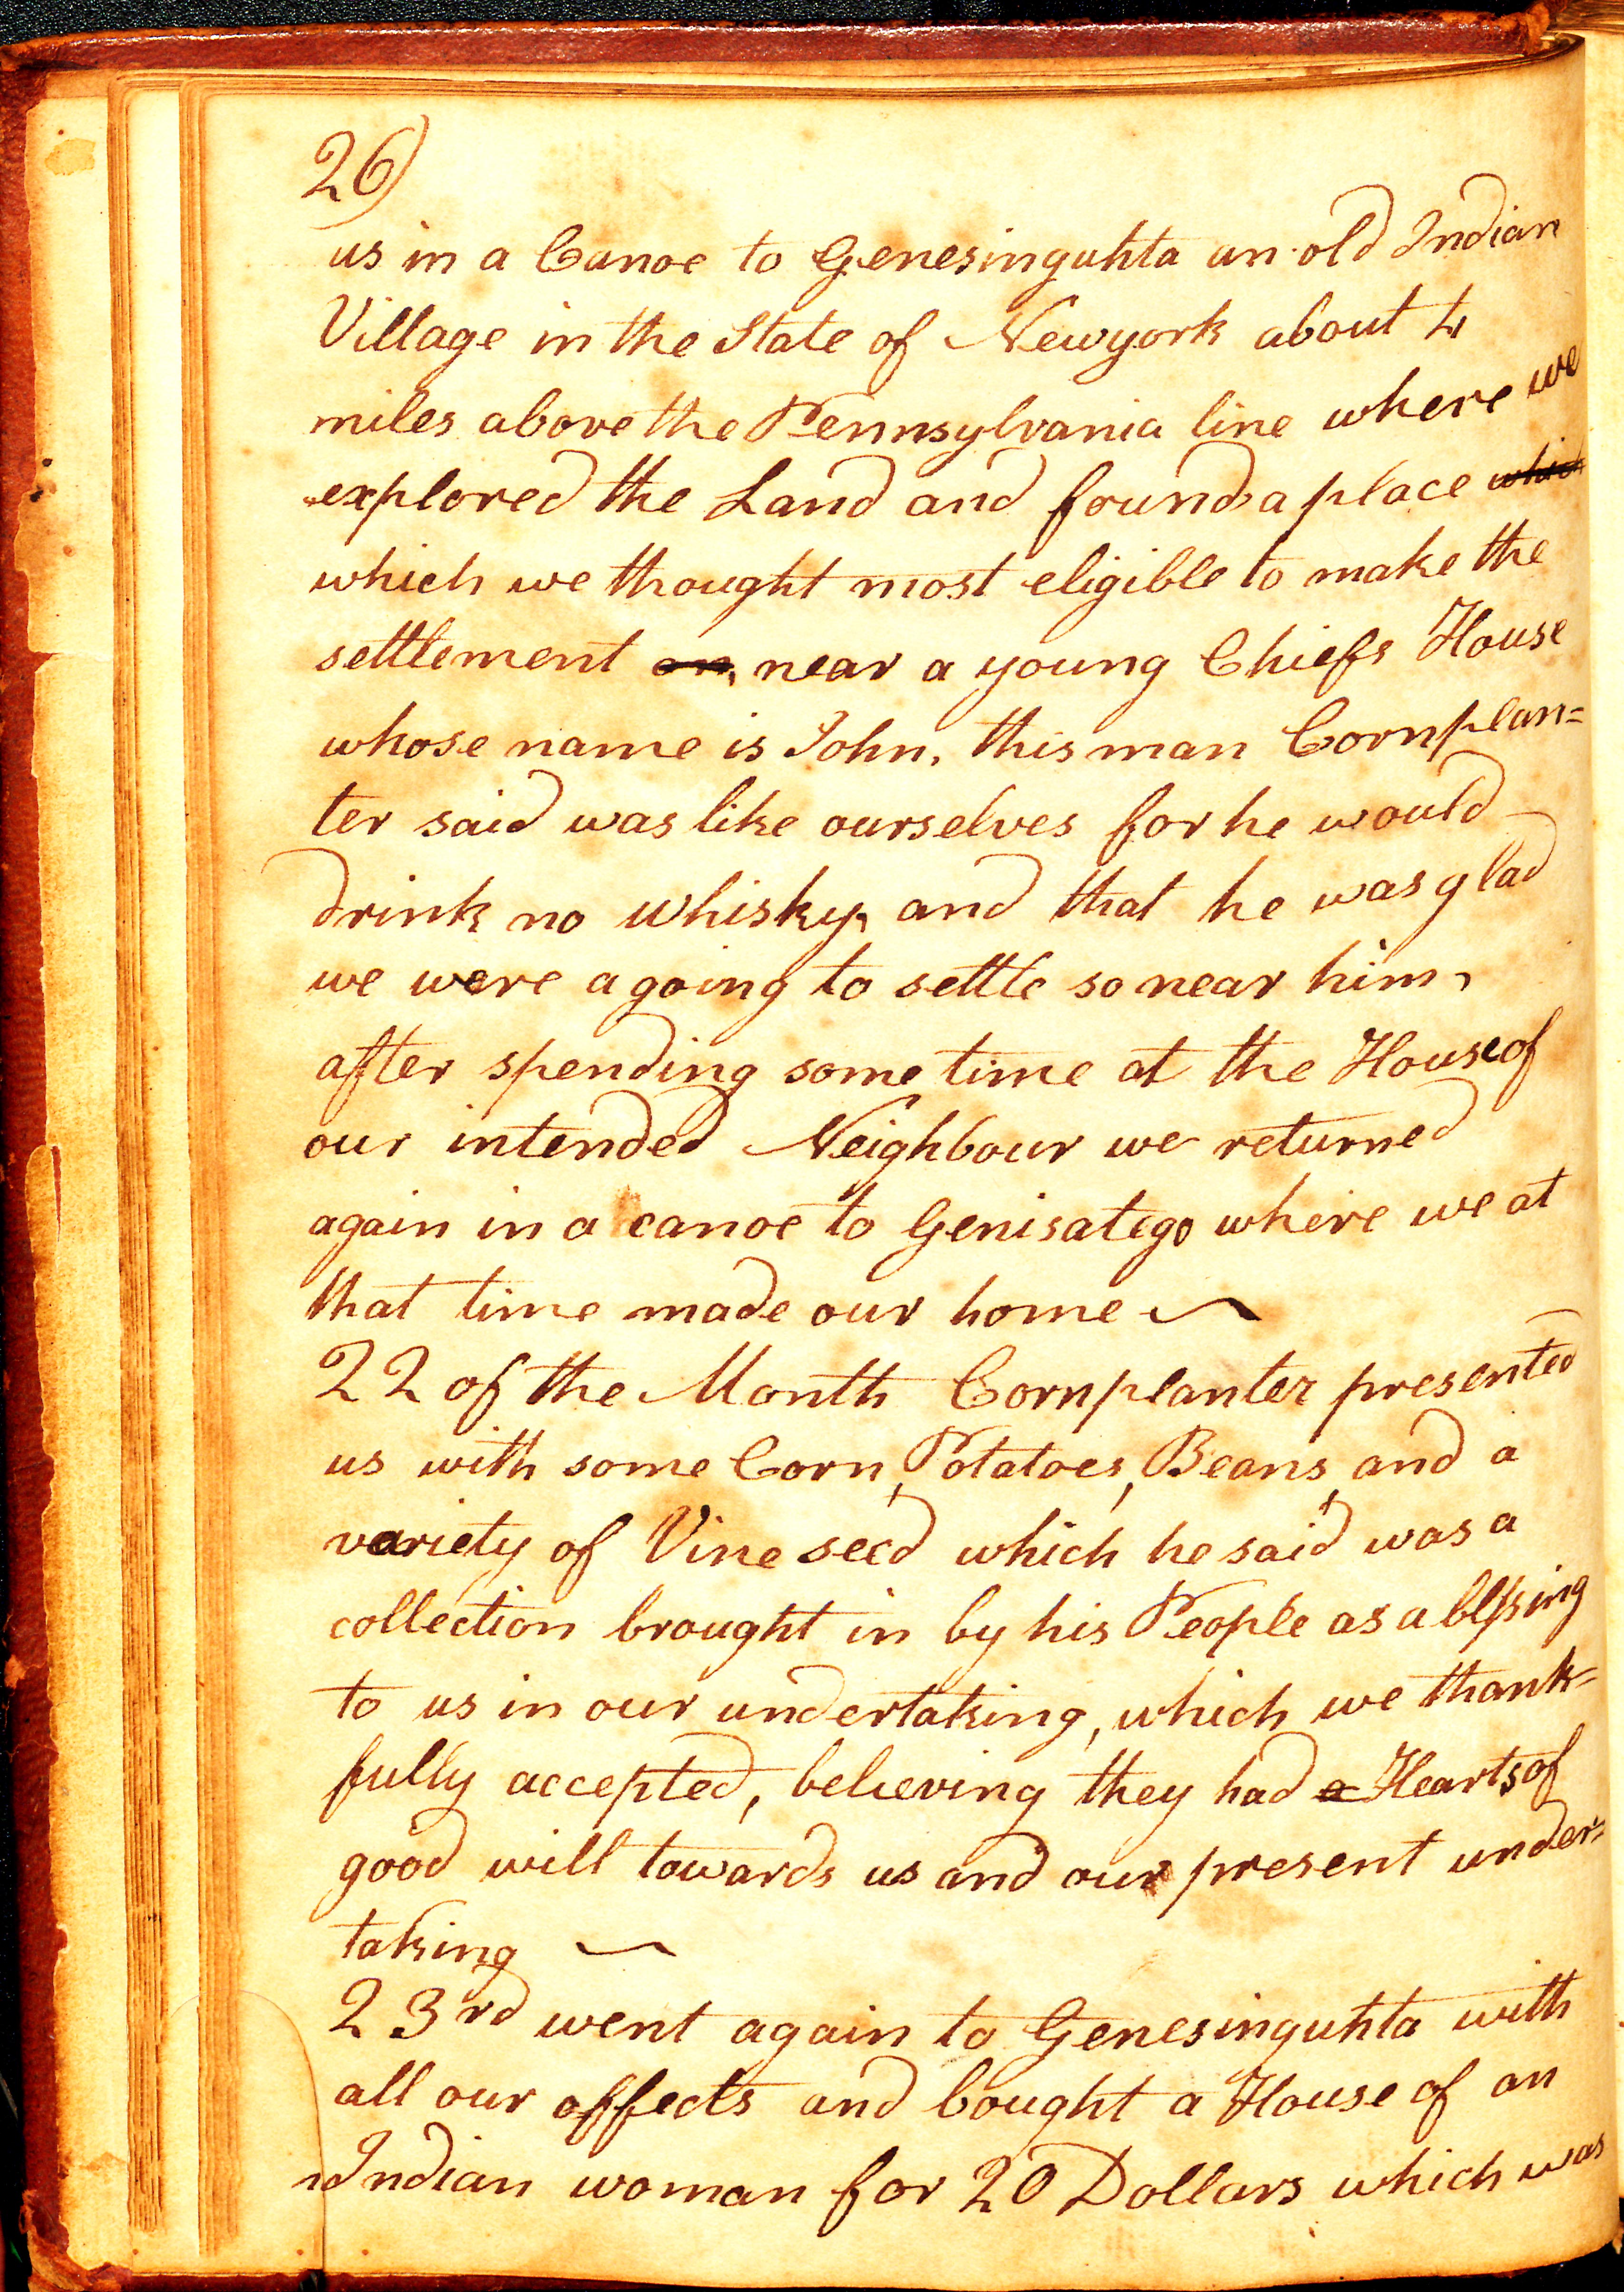 26)
us in a Canoe to Genesinguhta an old Indian
Village in the State of Newyork about 4
miles above the Pennsylvania line where we
explored the Land and found a place which
which we thought most eligible to make the
settlement on, near a young Chiefs House
whose name is John, this man Cornplan=
ter said was like ourselves for he would
drink no whisky, and that he was glad
we were agoing to settle so near him,
after spending some time at the House of
our intended Neighbour we returned
again in a canoe to Genisatego where we at
that time made our home ~
22 of the Month Cornplanter presented
us with some Corn, Potatoes, Beans, and a
variety of Vine seed which he said was a
collection brought in by his People as a blessing
to us in our undertaking, which we thank=
fully accepted, believing they had a Hearts of
good will towards us and our present under=
taking ~
23rd went again to Genesinguhta with
all our affects and bought a House of an
Indian woman for 20 Dollars which was